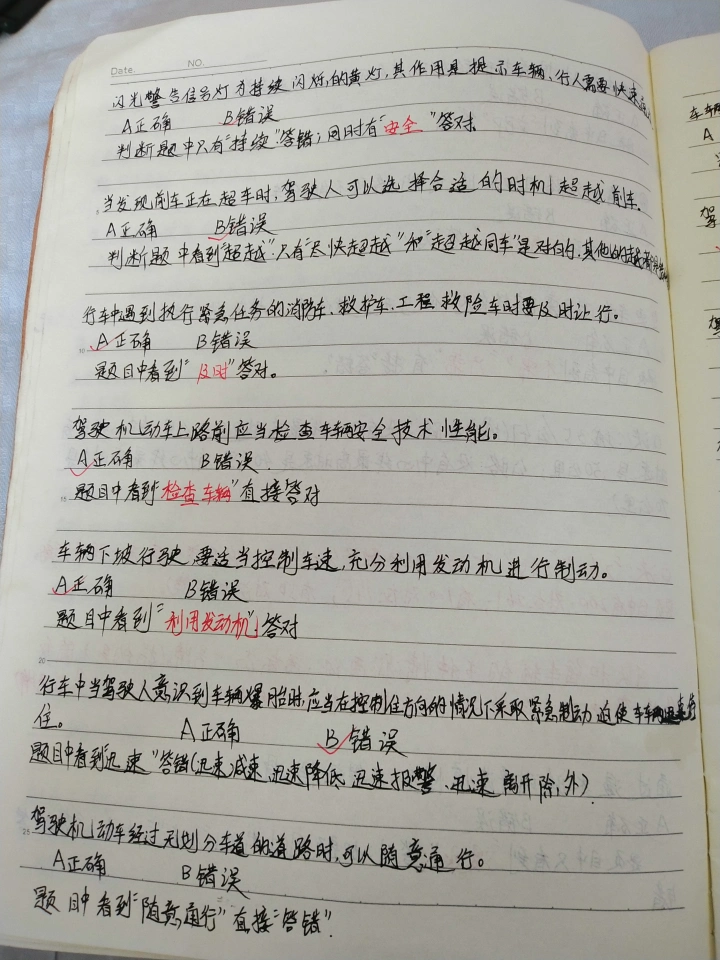 Date.
NO.
闪光警告信号灯为持续闪烁的黄灯,其作用是提示车辆、行人需要快速
A正确 B错误
判断题中只有"持续"答错;同时有"安全"答对。
当发现前车正在超车时,驾驶人可以选择合适的时机超越前车。
A正确 B错误
判断题中看到"超越",只有"尽快超越"和"超越同车"是对的,其他的
行车中遇到执行紧急任务的消防车、救护车、工程救险车时要及时让行。
A正确 B错误
题目中看到"及时"答对。
驾驶机动车上路前应当检查车辆安全技术性能。
A正确 B错误.
题目中看到"检查车辆"直接答对
车辆下坡行驶,要适当控制车速,充分利用发动机进行制动。
A正确 B错误
题目中看到"利用发动机"答对
行车中当驾驶人意识到车辆爆胎时,应当在控制住方向的情况下采取紧急制动,迫使车辆迅速停
住。 A正确 B错误
题目中看到迅速"答错(迅速减速、迅速降低、迅速报警、迅速离开除外)
驾驶机动车经过无划分车道的道路时,可以随意通行。
A正确 B错误
题目中看到"随意通行"直接"答错".